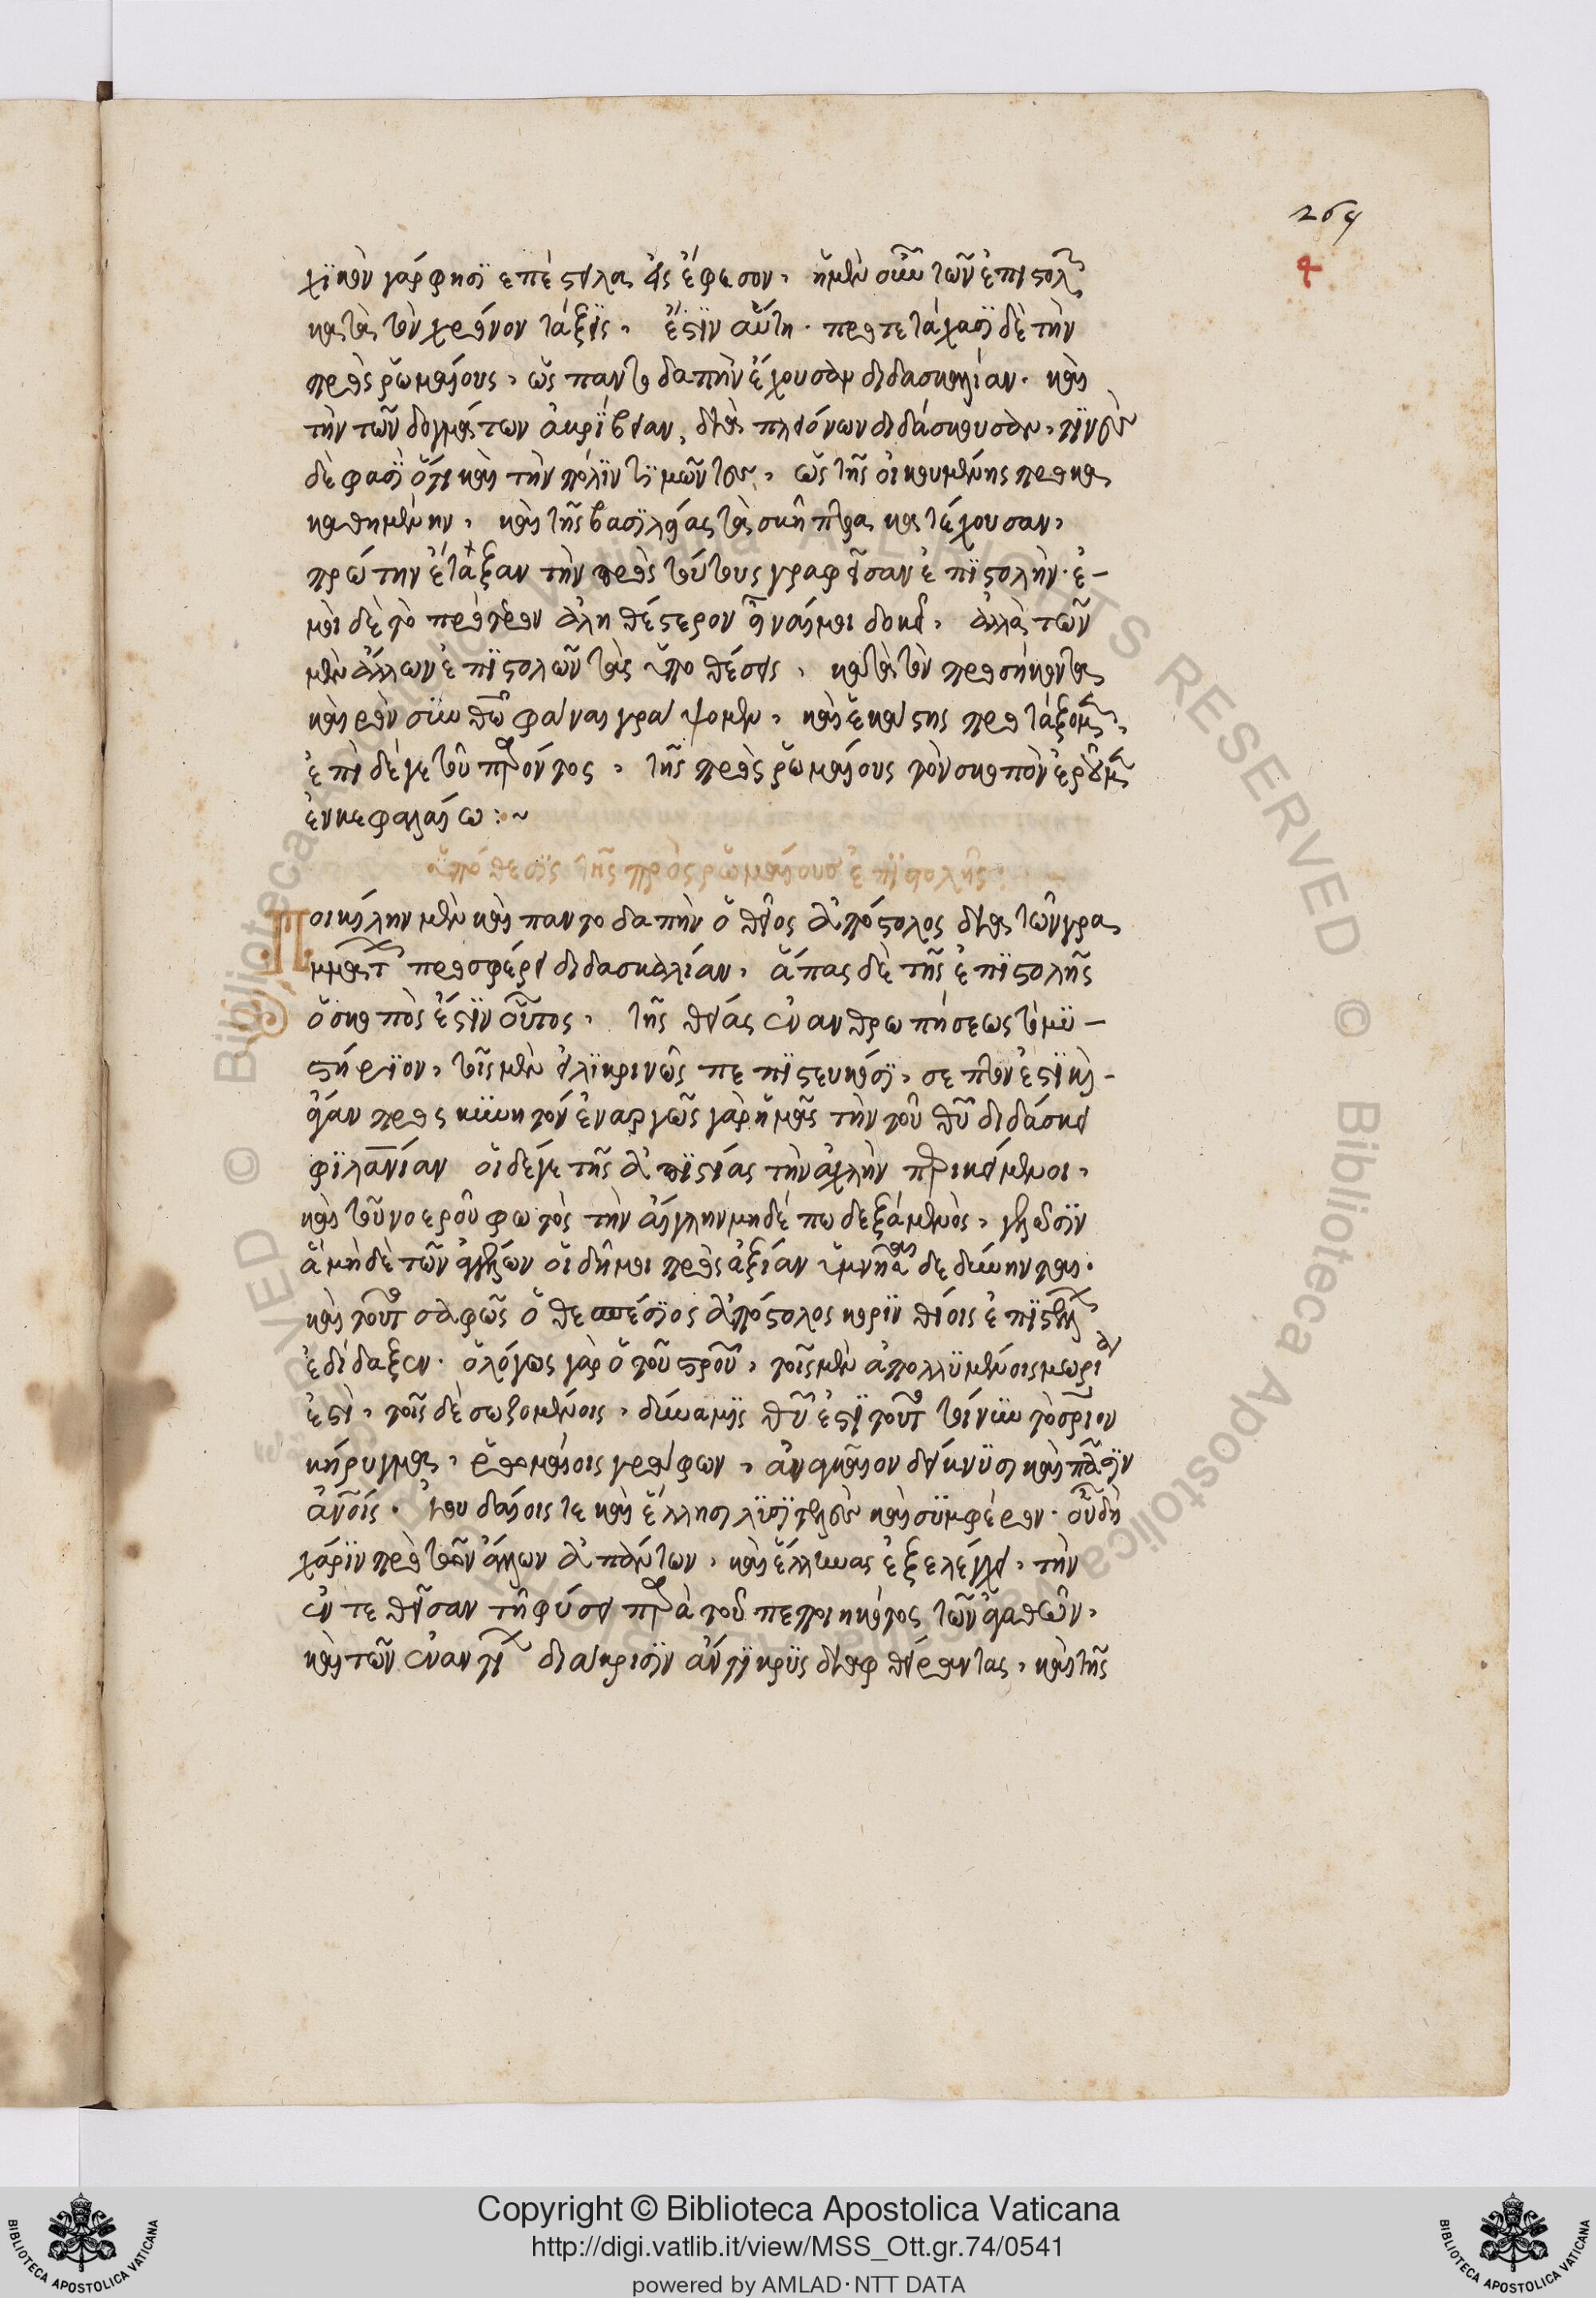 264
4
χϊκὸν γάρ φησῒ επέστειλα εἰς έφεσον, ἡ μὲν οὖν τῶν ἐπιστολ
κατὰ τὸν χρόνον τάξϊς, ἔστϊν αὕτη · προτετάχασῒ δὲ τὴν
πρὸς ῥωμαίους, ὡς παντοδαπὴν ἔχουσαν διδασκαλίαν · καὶ
τὴν τῶν δογμάτων ἀκρίβειαν, διὰ πλειόνων διδάσκουσαν, τϊνὲς
δὲ φασῒ ὅτι καὶ τὴν πόλϊν τϊμῶντες, ὡς τῆς οἰκουμένης προκα
καθημένην, καὶ τῆς βασϊλείας τὰ σκῆπτρα κατέχουσαν,
πρώτην ἔταξαν τὴν πρὸς τούτους γραφεῖσαν ἐπϊστολὴν · ἐ-
μοὶ δὲ τὸ πρότερον ἀληθέστερον εἶναί μοι δοκεῖ, ἀλλὰ τῶν
μὲν ἄλλων ἐπϊστολῶν τὰς ὑποθέσεις, κατὰ τὸν προσήκοντα
καιρὸν σὺν θῶ φάναι γράψομεν, καὶ ἑκάστης προτάξομ,
ἐπὶ δέ γε τοῦ πρόντος, τῆς πρὸς ῥωμαίους τὸν σκοπὸν ἐροῦμ
ἐν κεφαλαίω :~
ὑπόθεσϊς τῆς πρὸς ῥωμαίους ἐπϊστολῆς :
Ποικίλην μὲν καὶ παντοδαπὴν ὁ θεῖος ἀπόστολος διὰ τῶν γρα
μμάτ προσφέρει διδασκαλίαν, ἅπας δὲ τῆς ἐπϊστολῆς
ὁ σκοπὸς ἐστϊν οὗτος, τῆς θείας ἐνανθρωπήσεως τὸ μϋ-
στήρϊον, τοῖς μὲν εἰλϊκρινῶς πεπϊστευκόσϊ, σεπτὸν ἐστϊ καὶ
ἄγαν προσκυνητόν ἐναργῶς γὰρ ἡμᾶς τὴν τοῦ θῦ διδάσκει
φϊλανίαν οἱ δέ γε τῆς ἀπϊστίας τὴν ἀχλὴν πρικείμενοι,
καὶ τοῦ νοεροῦ φωτὸς τὴν αἴγλην μηδέπω δεξάμενος, γελῶσϊν
ἃ μὴ δὲ τῶν ἀγγέλων οἱ δῆμοι πρὸς ἀξίαν ὑμνῆσαι δεδύνηνται ·
καὶ τοῦτ σαφῶς ὁ θεσπέσϊος ἀπόστολος κορϊνθίοις ἐπϊστέλλ
ἐδίδαξεν · ὁ λόγος γὰρ ὁ τοῦ στροῦ, τοῖς μὲν ἀπολλϋμένοις μωρία
ἐστὶ, τοῖς δὲ σωζομένοις, δύναμϊς θῦ ἐστϊ τοῦτ τοίνυν τὸ σριον
κήρυγμα, ῥωμαίοις γράφων, ἀναγκαῖον δείκνϋσι καὶ πᾶσϊν
ἀνοίς · ἰουδαίοις τε καὶ ἕλλησι λϋσϊτελὲς καὶ σϋμφέρον · οὗ δὴ
χάρϊν πρὸ τῶν ἄλλων ἁπάντων, καὶ ἕλληνας ἐξελέγχει, τὴν
ἐντεθεῖσαν τῆ φύσει πρὰ τοῦ πεποιηκότος τῶν ἀγαθῶν,
καὶ τῶν ἐναντί διάκρισϊν ἀντϊκρϋς διαφθείροντας, καὶ τῆς
Copyright © Biblioteca Apostolica Vaticana
http://digi.vatlib.it/view/MSS_Ott.gr.74/0541
powered by AMLAD·NTT DATA